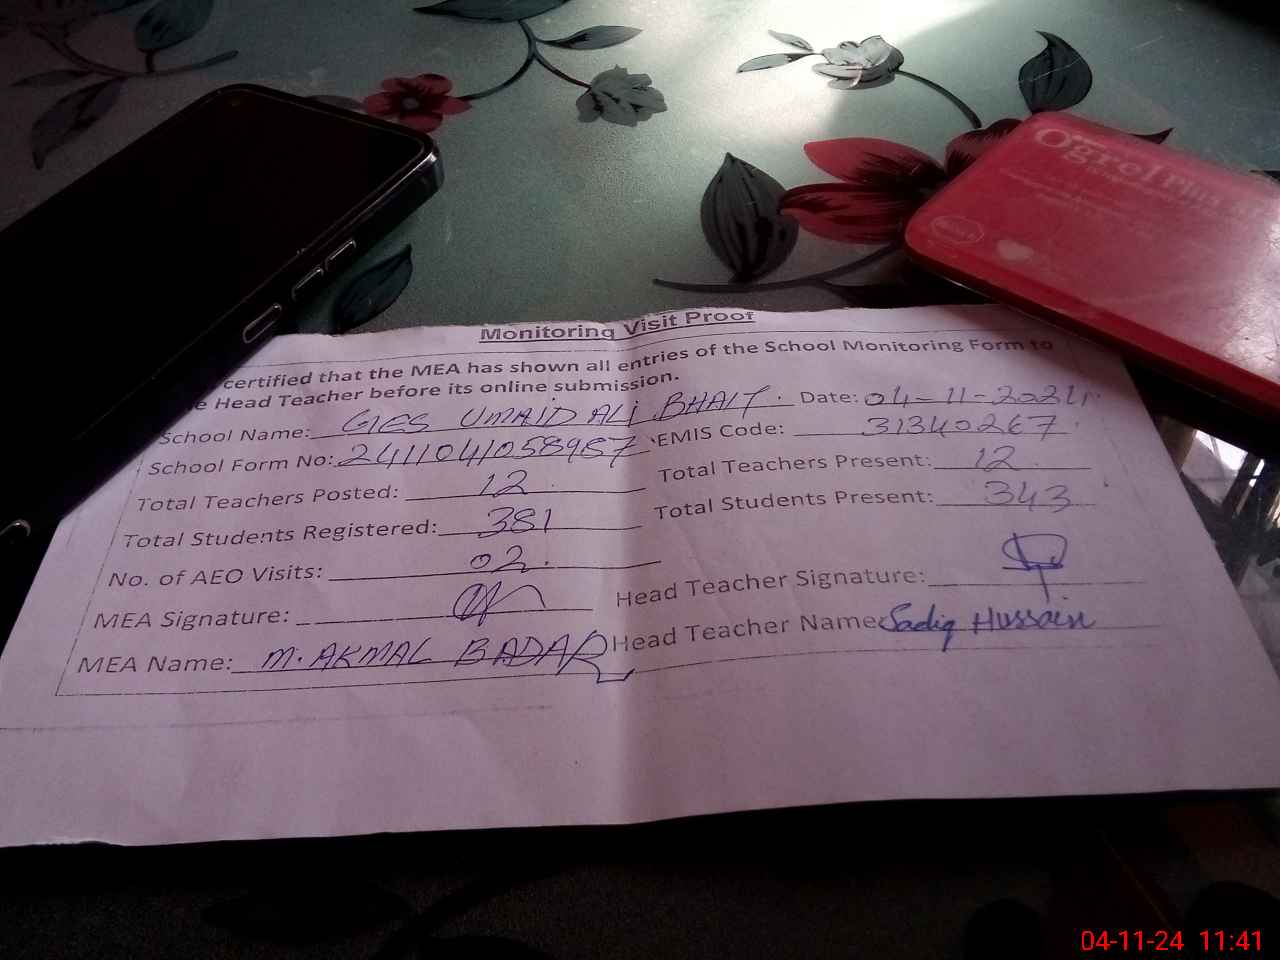 Ogrel
Monitoring Visit Proof
certified that the MEA has shown all entries of the School Monitoring Form to
Head Teacher before its online submission.
School Name: GES UMAID ALI BHAIT. Date: 04-11-2024
School Form No: 2411041058987 EMIS Code: 31340267
Total Teachers Posted: 12 Total Teachers Present: 12
Total Students Registered: 381 Total Students Present: 343
No. of AEO Visits: 02
MEA Signature: Head Teacher Signature:
MEA Name: M. AKMAL BADAR Head Teacher Name: Sadiq Hussain
04-11-24 11:41